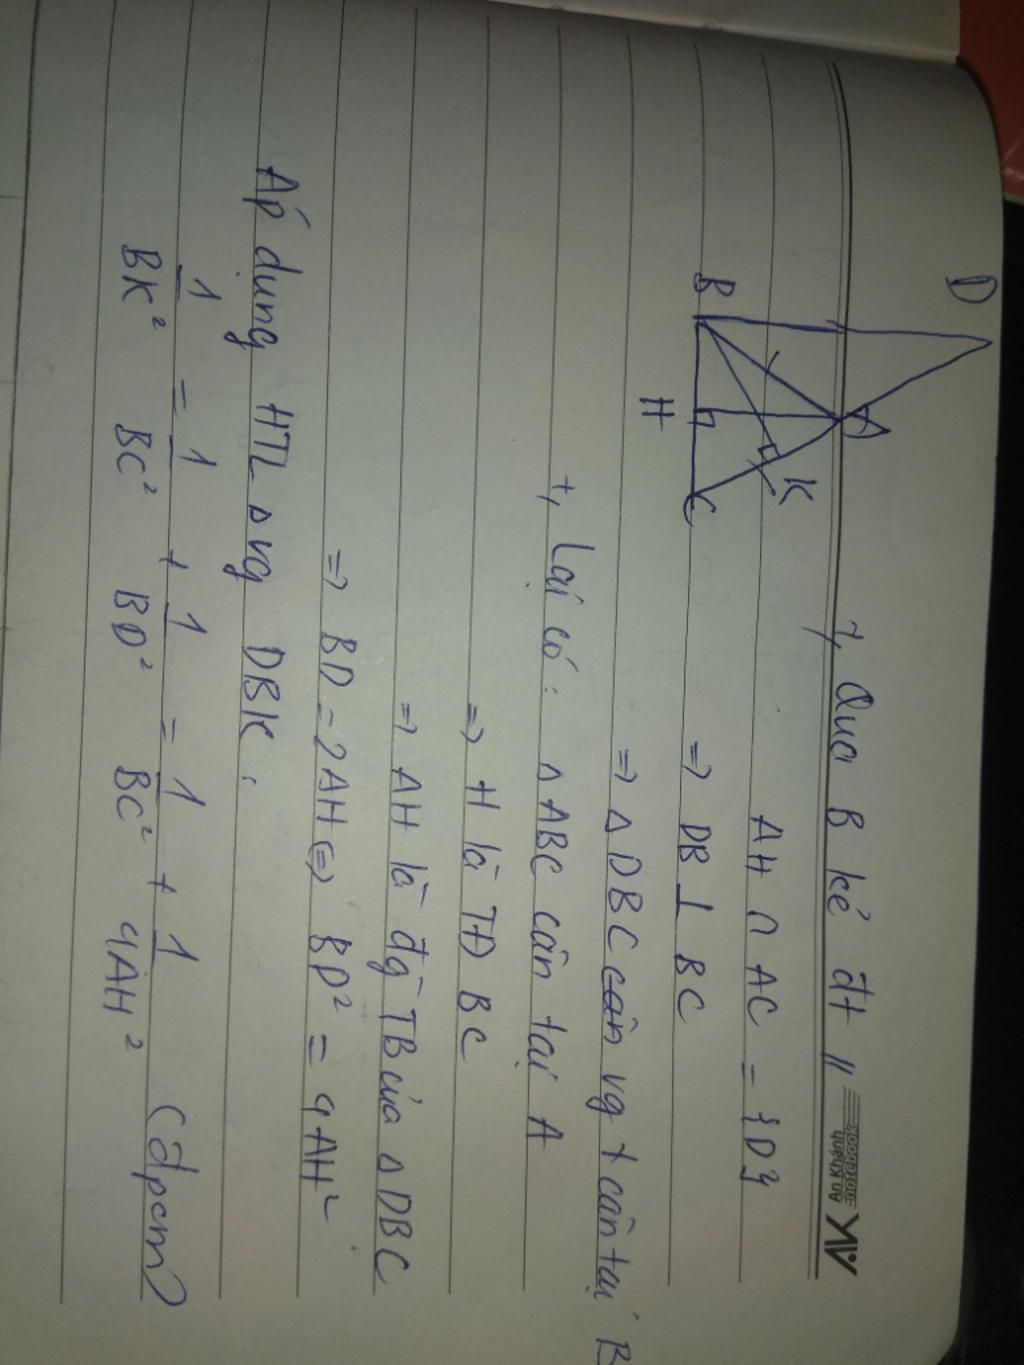 7, Qua B kẻ đt //
AH ∩ AC = {D}
⇒ DB ⊥ BC
⇒ ∆ DBC cân vg + cân tại B
+, Lại có : ∆ ABC cân tại A
⇒ H là TĐ BC
⇒ AH là đg TB của ∆ DBC
⇒ BD = 2AH ⇔ BD² = 4AH²
Áp dụng HTL ∆ vg DBK :
1/BK² = 1/BC² + 1/BD² = 1/BC² + 1/4AH² (đpcm)
D
B
H
K
C
An Khánh
notebook
AK